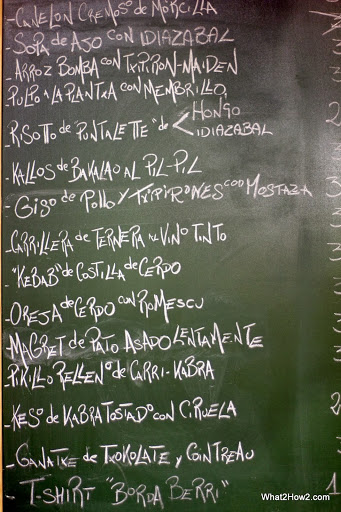 - CANELON CREMOSO DE MORCILLA
- SOPA de AJO CON IDIAZABAL
- ARROZ BOMBA CON TXIPIRON-MAIDEN
- PULPO A LA PLANTXA CON MEMBRILLO
- RISOTTO de "PUNTALETTE" de < HONGO
IDIAZABAL
- KALLOS de BAKALAO AL PIL-PIL
- GISO de POLLO Y TXIPIRONES CON MOSTAZA
- CARRILLERA de TERNERA AL VINO TINTO
- "KEBAB" de COSTILLA de CERDO
- OREJA de CERDO CON ROMESCU
- MAGRET de PATO ASADO LENTAMENTE
- PIKILLO RELLENO de CARRI-KABRA
- KESO de KABRA TOSTADO CON CIRUELA
- GANATXE de TXOKOLATE y COINTREAU
- T-SHIRT "BORDA BERRI"
What2How2.com